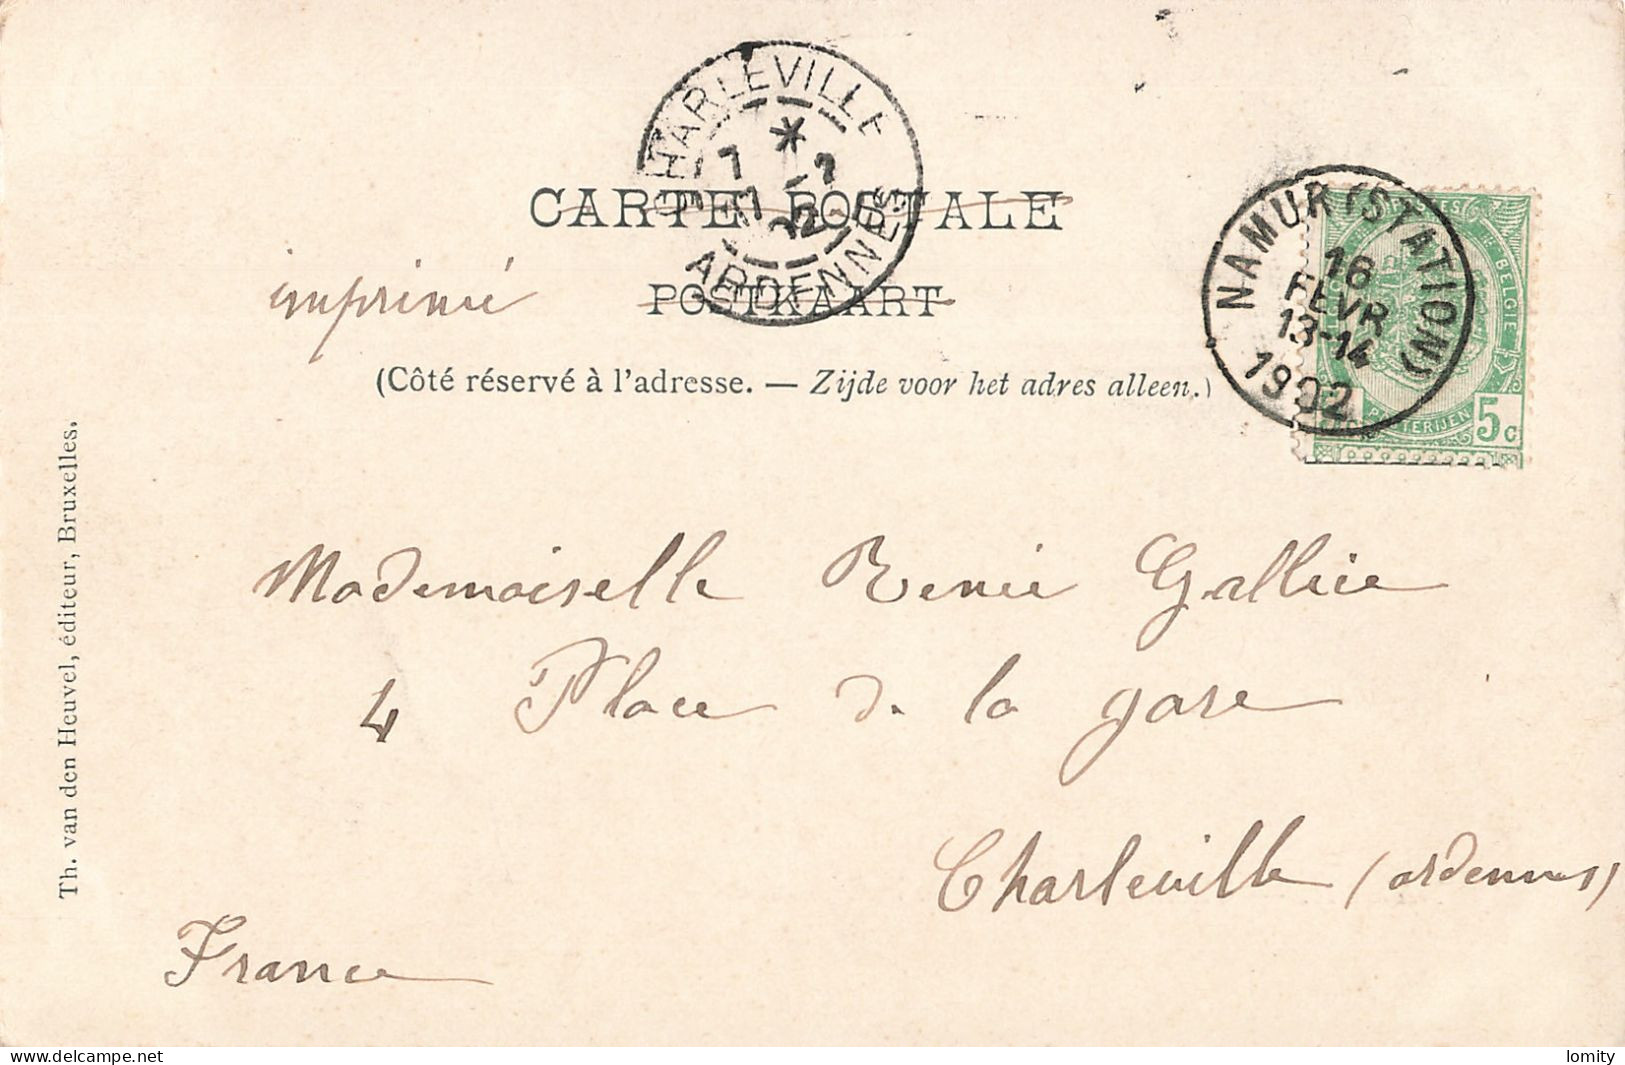 CHARLEVILLE
ARDENNES
CARTE POSTALE
NAMUR (STATION)
16
FEVR
13-14
1902
BELGIE
POSTERIJEN
5c
imprimé
POSTKAART
(Côté réservé à l'adresse. — Zijde voor het adres alleen.)
Mademoiselle Renée Gallice
4 Place de la gare
Charleville (ardennes)
France
Th. van den Heuvel, éditeur, Bruxelles.
www.delcampe.net
lomity